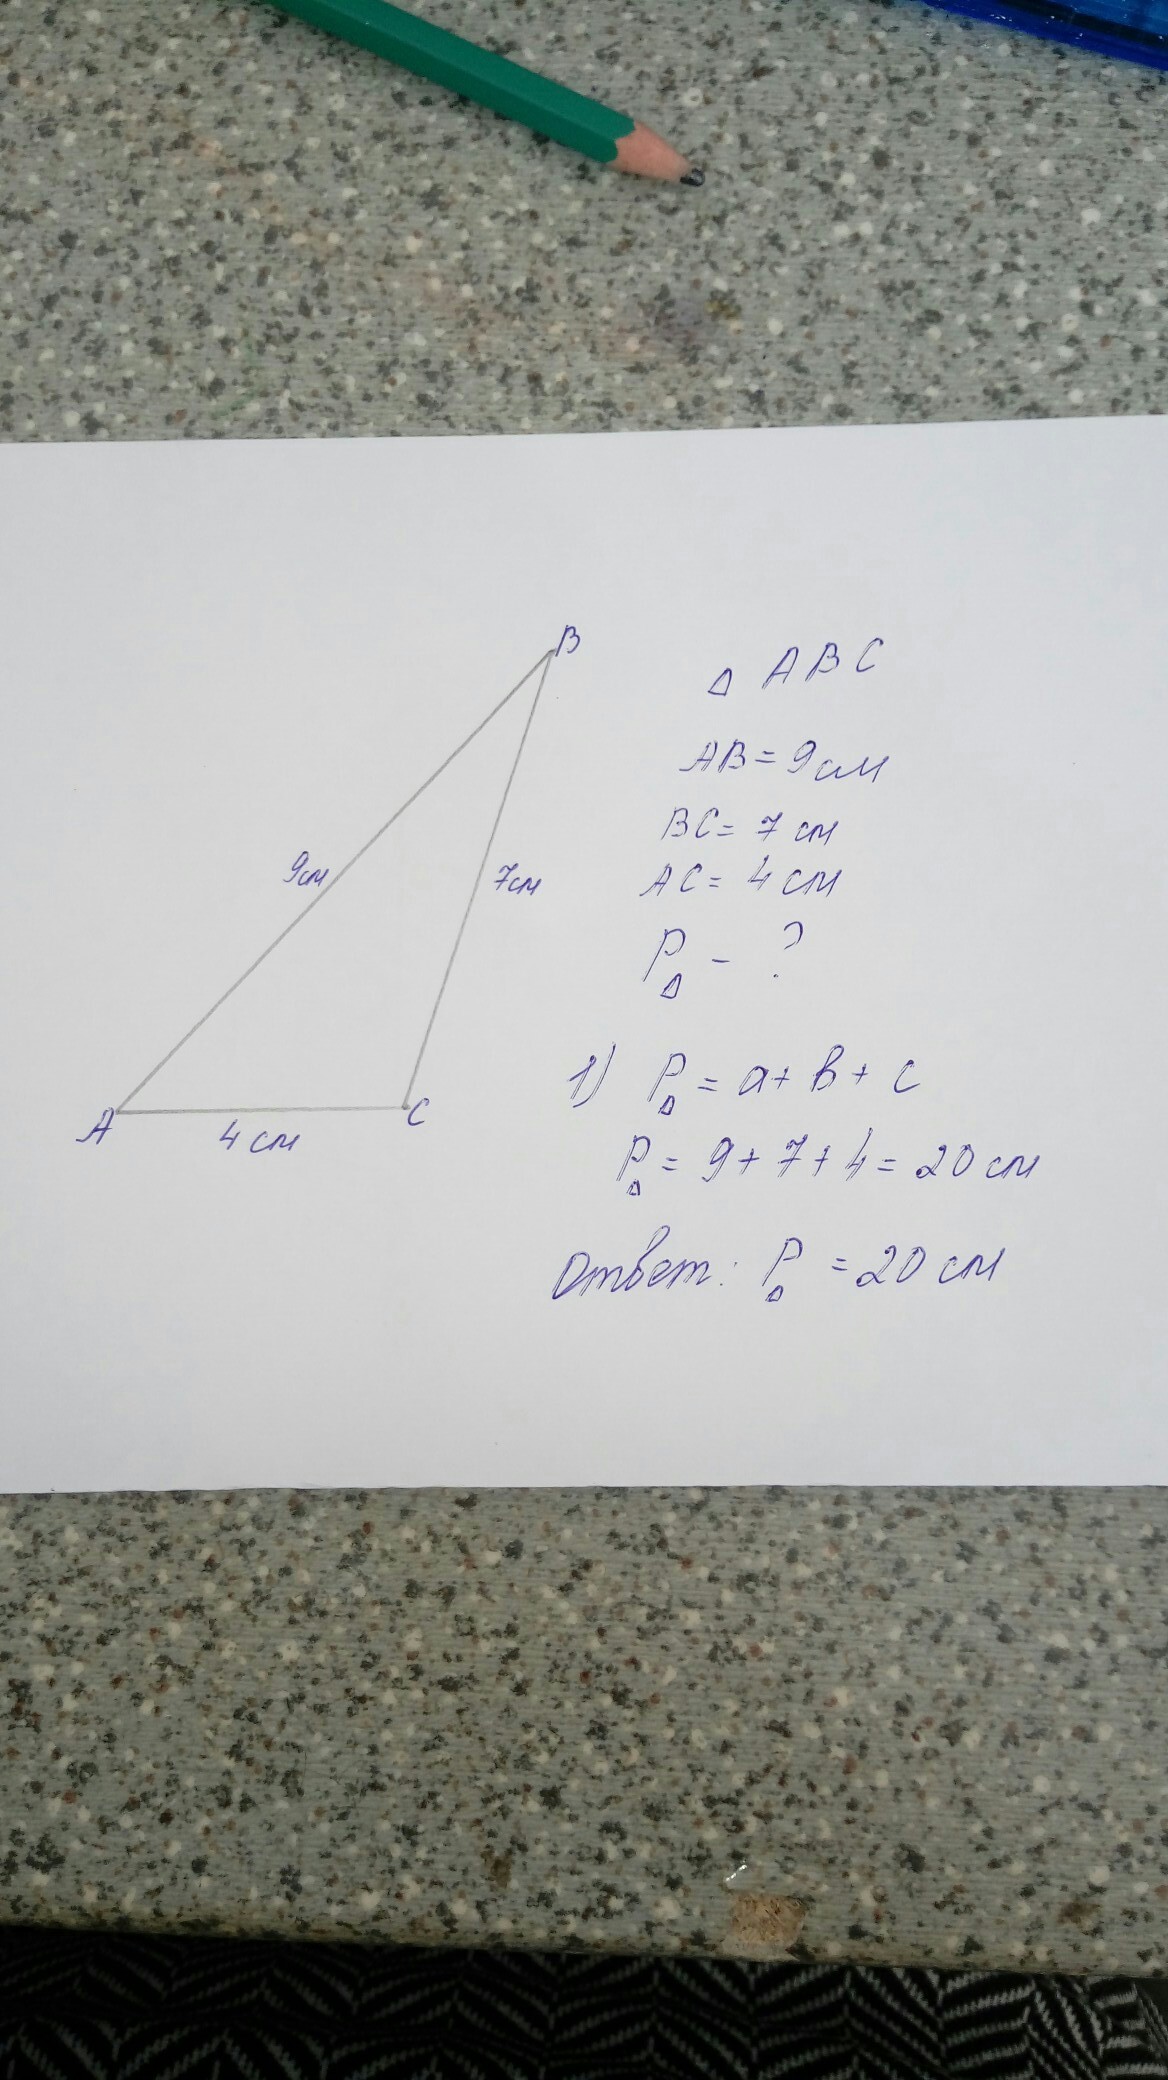 B
9см
7см
A
C
4 см
Δ ABC
AB = 9 см
BC = 7 см
AC = 4 см
PΔ - ?
1) PΔ = a + b + c
PΔ = 9 + 7 + 4 = 20 см
Ответ: PΔ = 20 см